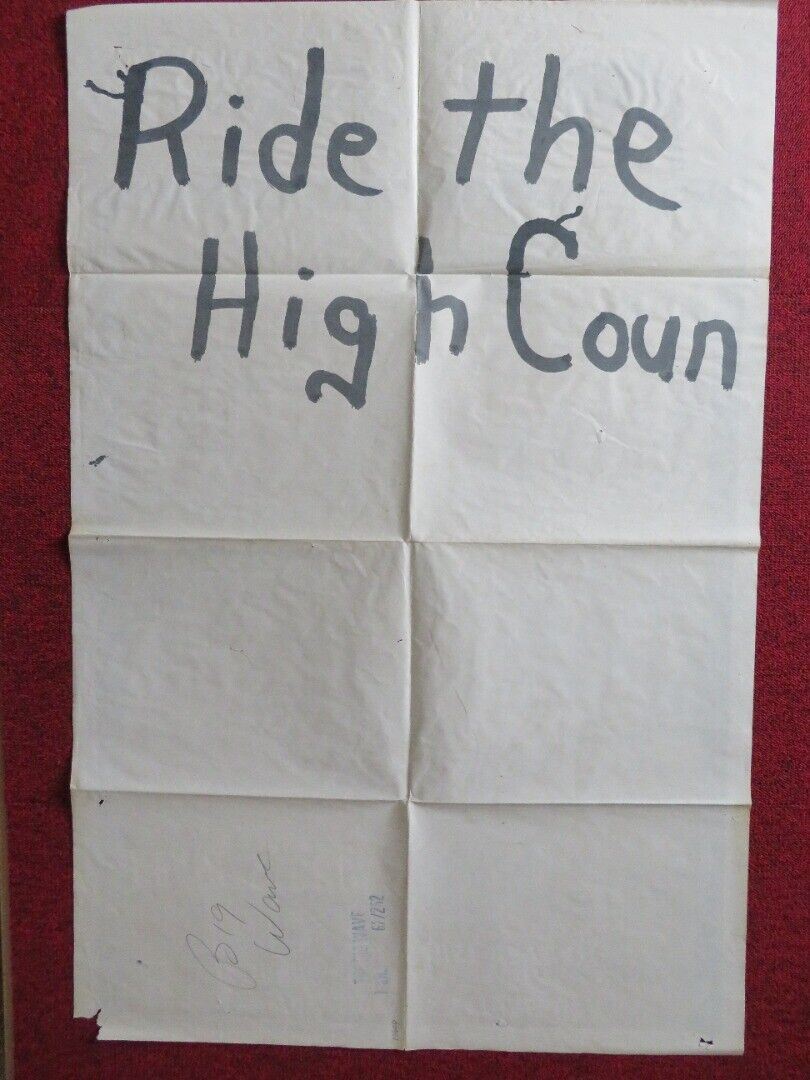 Ride the
High Coun
Big
Wave
WAVE
67/252